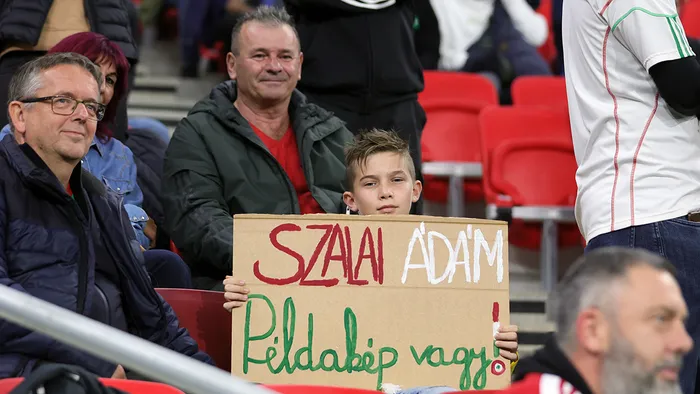 SZALAI ÁDÁM
Példakép vagy!